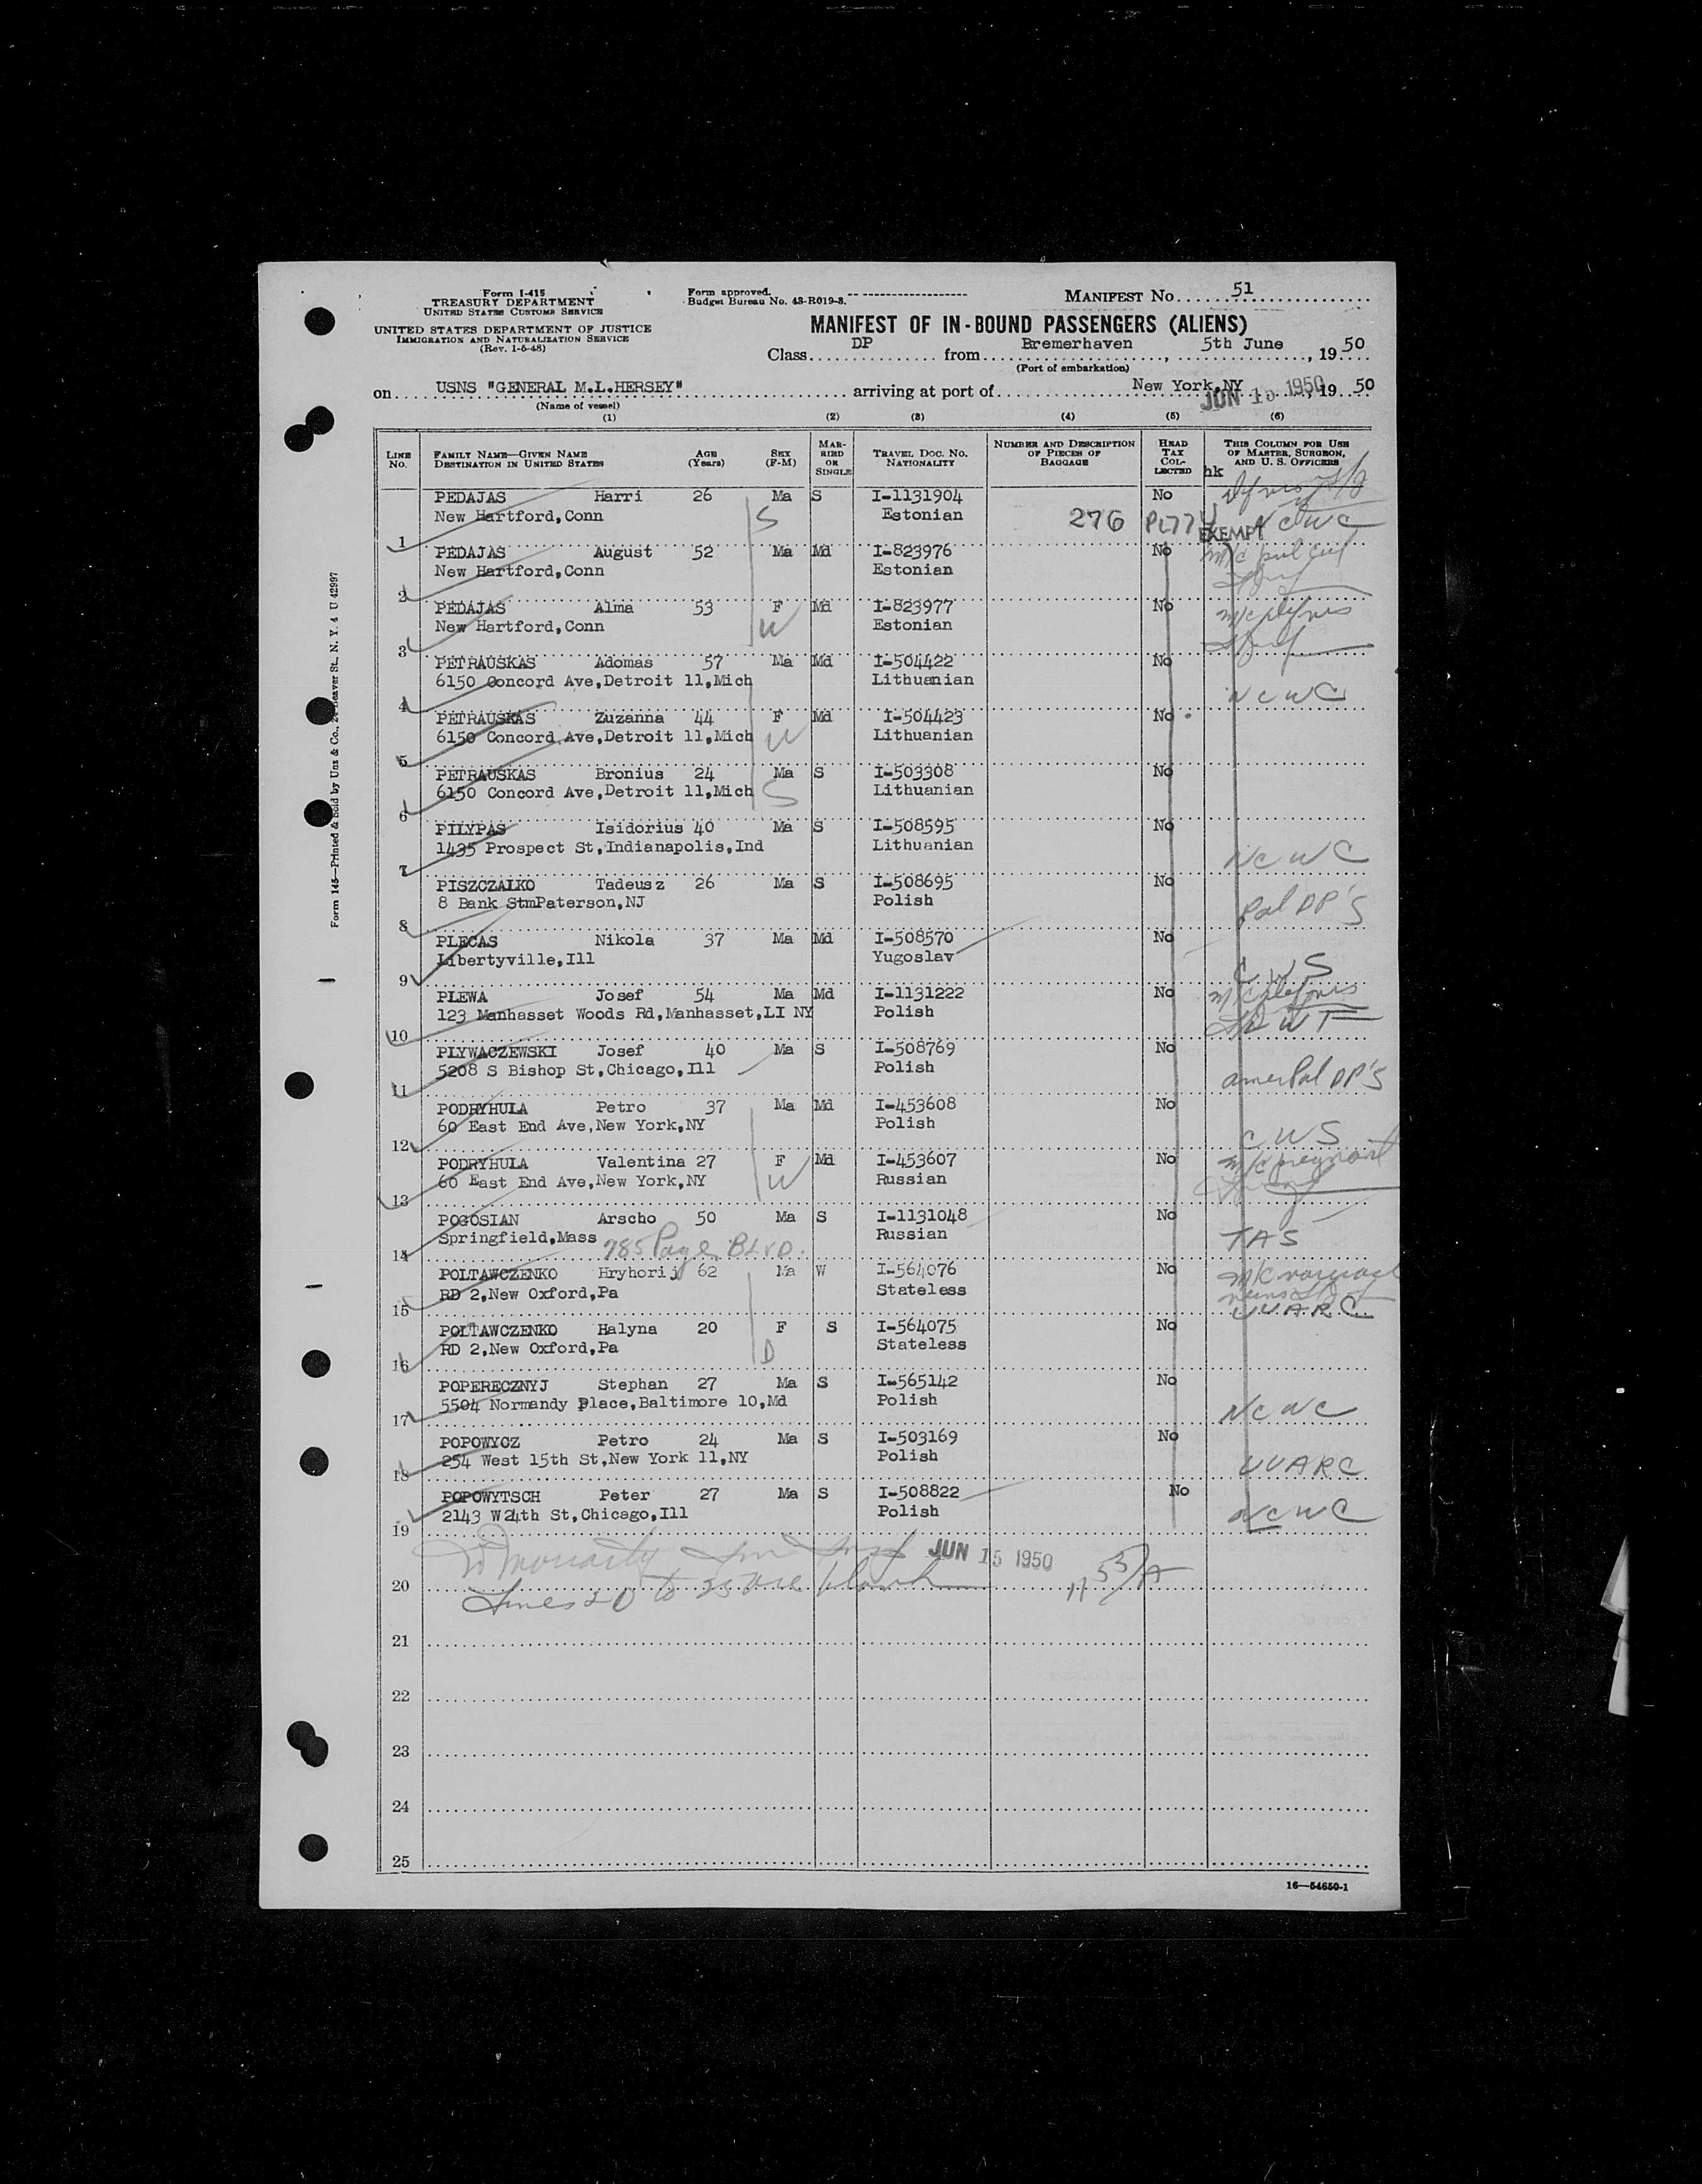 Form I-415
TREASURY DEPARTMENT
UNITED STATES CUSTOMS SERVICE
UNITED STATES DEPARTMENT OF JUSTICE
IMMIGRATION AND NATURALIZATION SERVICE
(Rev. 1-5-48)
Form approved.
Budget Bureau No. 43-R019-3.
MANIFEST No. 51
MANIFEST OF IN-BOUND PASSENGERS (ALIENS)
Class DP from Bremerhaven, 5th June, 19 50
(Port of embarkation)
on USNS "GENERAL M.L.HERSEY" arriving at port of New York,NY, 19 50
JUN 15 1950
(Name of vessel)
(1) (2) (3) (4) (5) (6)
LINE No. FAMILY NAME—GIVEN NAME DESTINATION IN UNITED STATES AGE (Years) SEX (F-M) MARRIED OR SINGLE TRAVEL DOC. NO. NATIONALITY NUMBER AND DESCRIPTION OF PIECES OF BAGGAGE HEAD TAX COLLECTED THIS COLUMN FOR USE OF MASTER, SURGEON, AND U. S. OFFICERS
hk
PEDAJAS Harri 26 Ma S I-1131904 No
New Hartford,Conn S Estonian 276 PL774 EXEMPT NCWC
1
PEDAJAS August 52 Ma Md I-823976 No
New Hartford,Conn Estonian
2
PEDAJAS Alma 53 F Md I-823977 No
New Hartford,Conn W Estonian
3
PETRAUSKAS Adomas 57 Ma Md I-504422 No
6150 Concord Ave,Detroit 11,Mich Lithuanian NCWC
4
PETRAUSKAS Zuzanna 44 F Md I-504423 No
6150 Concord Ave,Detroit 11,Mich W Lithuanian
5
PETRAUSKAS Bronius 24 Ma S I-503308 No
6150 Concord Ave,Detroit 11,Mich S Lithuanian
6
PILYPAS Isidorius 40 Ma S I-508595 No
1435 Prospect St,Indianapolis,Ind Lithuanian NCWC
7
PISZCZALKO Tadeusz 26 Ma S I-508695 No
8 Bank StmPaterson,NJ Polish Pol DP'S
8
PLECAS Nikola 37 Ma Md I-508570 No
Libertyville,Ill Yugoslav CWS
9
PLEWA Josef 54 Ma Md I-1131222 No
123 Manhasset Woods Rd,Manhasset,LI NY Polish
10
PLYWACZEWSKI Josef 40 Ma S I-508769 No
5208 S Bishop St,Chicago,Ill Polish amerPol DP'S
11
PODRYHULA Petro 37 Ma Md I-453608 No
60 East End Ave,New York,NY Polish CWS
12
PODRYHULA Valentina 27 F Md I-453607 No m/c pregnant
60 East End Ave,New York,NY W Russian
13
POGOSIAN Arscho 50 Ma S I-1131048 No
Springfield,Mass 785 Page BLVD. Russian TAS
14
POLTAWCZENKO Hryhorij 62 Ma W I-564076 No
RD 2,New Oxford,Pa Stateless UUARC
15
POLTAWCZENKO Halyna 20 F S I-564075 No
RD 2,New Oxford,Pa D Stateless
16
POPERECZNYJ Stephan 27 Ma S I-565142 No
5504 Normandy Place,Baltimore 10,Md Polish NCWC
17
POPOWYCZ Petro 24 Ma S I-503169 No
254 West 15th St,New York 11,NY Polish UUARC
18
POPOWYTSCH Peter 27 Ma S I-508822 No
2143 W24th St,Chicago,Ill Polish NCWC
19
Moriarty JUN 15 1950
20 Lines 20 to 25 are blank
21
22
23
24
25
16—54650-1
Form 145—Printed & Sold by Unz & Co., 24 Beaver St., N. Y. 4 U 42997